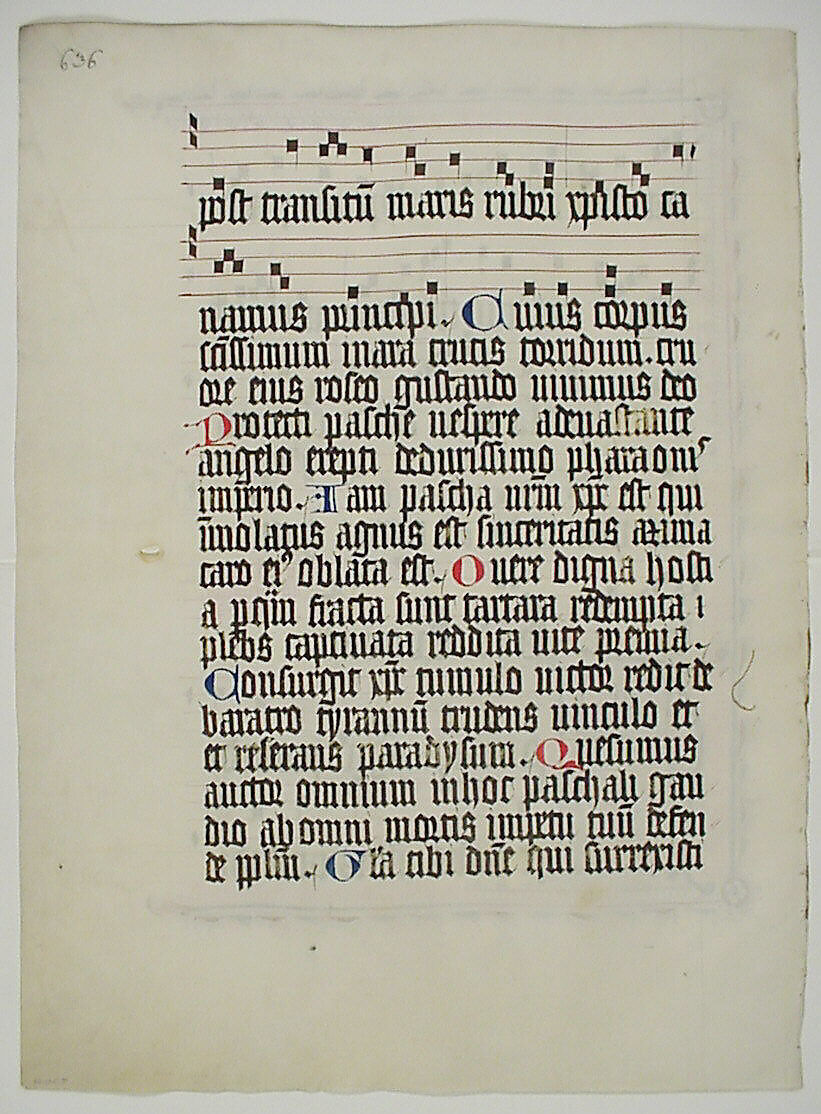 636
post transitū maris rubri xpisto ca
namus principi. Cuius corpus
scīssimum inara crucis torridum. cru
ore eius roseo gustando uiuimus deo
Protecti pasche uespere adeuastante
angelo erepti dedurissimo pharaonis
imperio. Iam pascha nr̄m xp̄c est qui
īmolatus agnus est sinceritatis azima
caro eiꝰ oblata est. O uere digna hosti
a p quā fracta sunt tartara redempta ı
plebs captiuata reddita uite premia.
Consurgit xp̄c tumulo uictor redit de
baratro tyrannū trudens uinculo et
et reserans paradysum. Quesumus
auctor omnium inhoc paschali gau
dio ab omni mortis impetu tuū defen
de pplm̄. Gl̄a tibi dn̄e qui surrexisti